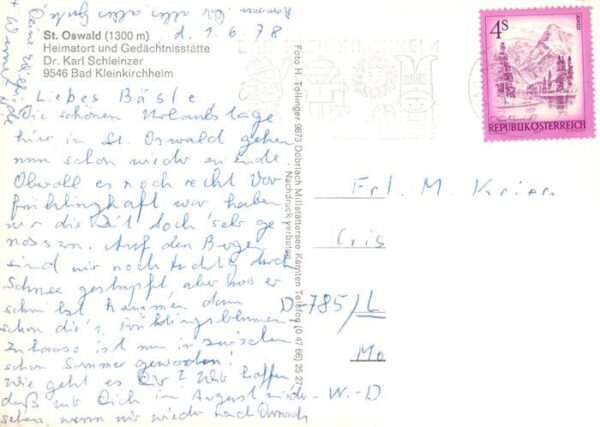 St. Oswald (1300 m)
Heimatort und Gedächtnisstätte
Dr. Karl Schleinzer
9546 Bad Kleinkirchheim
d. 1.6.78
Liebes Bäsle
Die schönen Urlaubstage
hier in St. Oswald gehen
nun schon wieder zu Ende
Obwohl es noch recht vor
frühlinghaft war haben
wir die Zeit doch sehr ge
nossen. Auf den Bergen
sind wir noch tüchtig durch
Schnee gestapft aber wo er
schon ist kommen dann
schon die 1. Frühlingsblumen
zuhause ist nun inzwischen
schon Sommer geworden!
Wie geht es Dir? Wir hoffen
daß wir Dich im August wieder
sehen, wenn wir wieder nach
kommen Dir alles alles Gute
Deine
+ Werner
BAD KLEINKIRCHHEIM
Foto H. Tollinger 9873 Döbriach Millstättersee Kärnten Telefon (0 47 66) 25 27
Nachdruck verboten
4 S
ALMSEE
REPUBLIK ÖSTERREICH
Frl. M.
Cris
D-785/L
Mo
W.-D